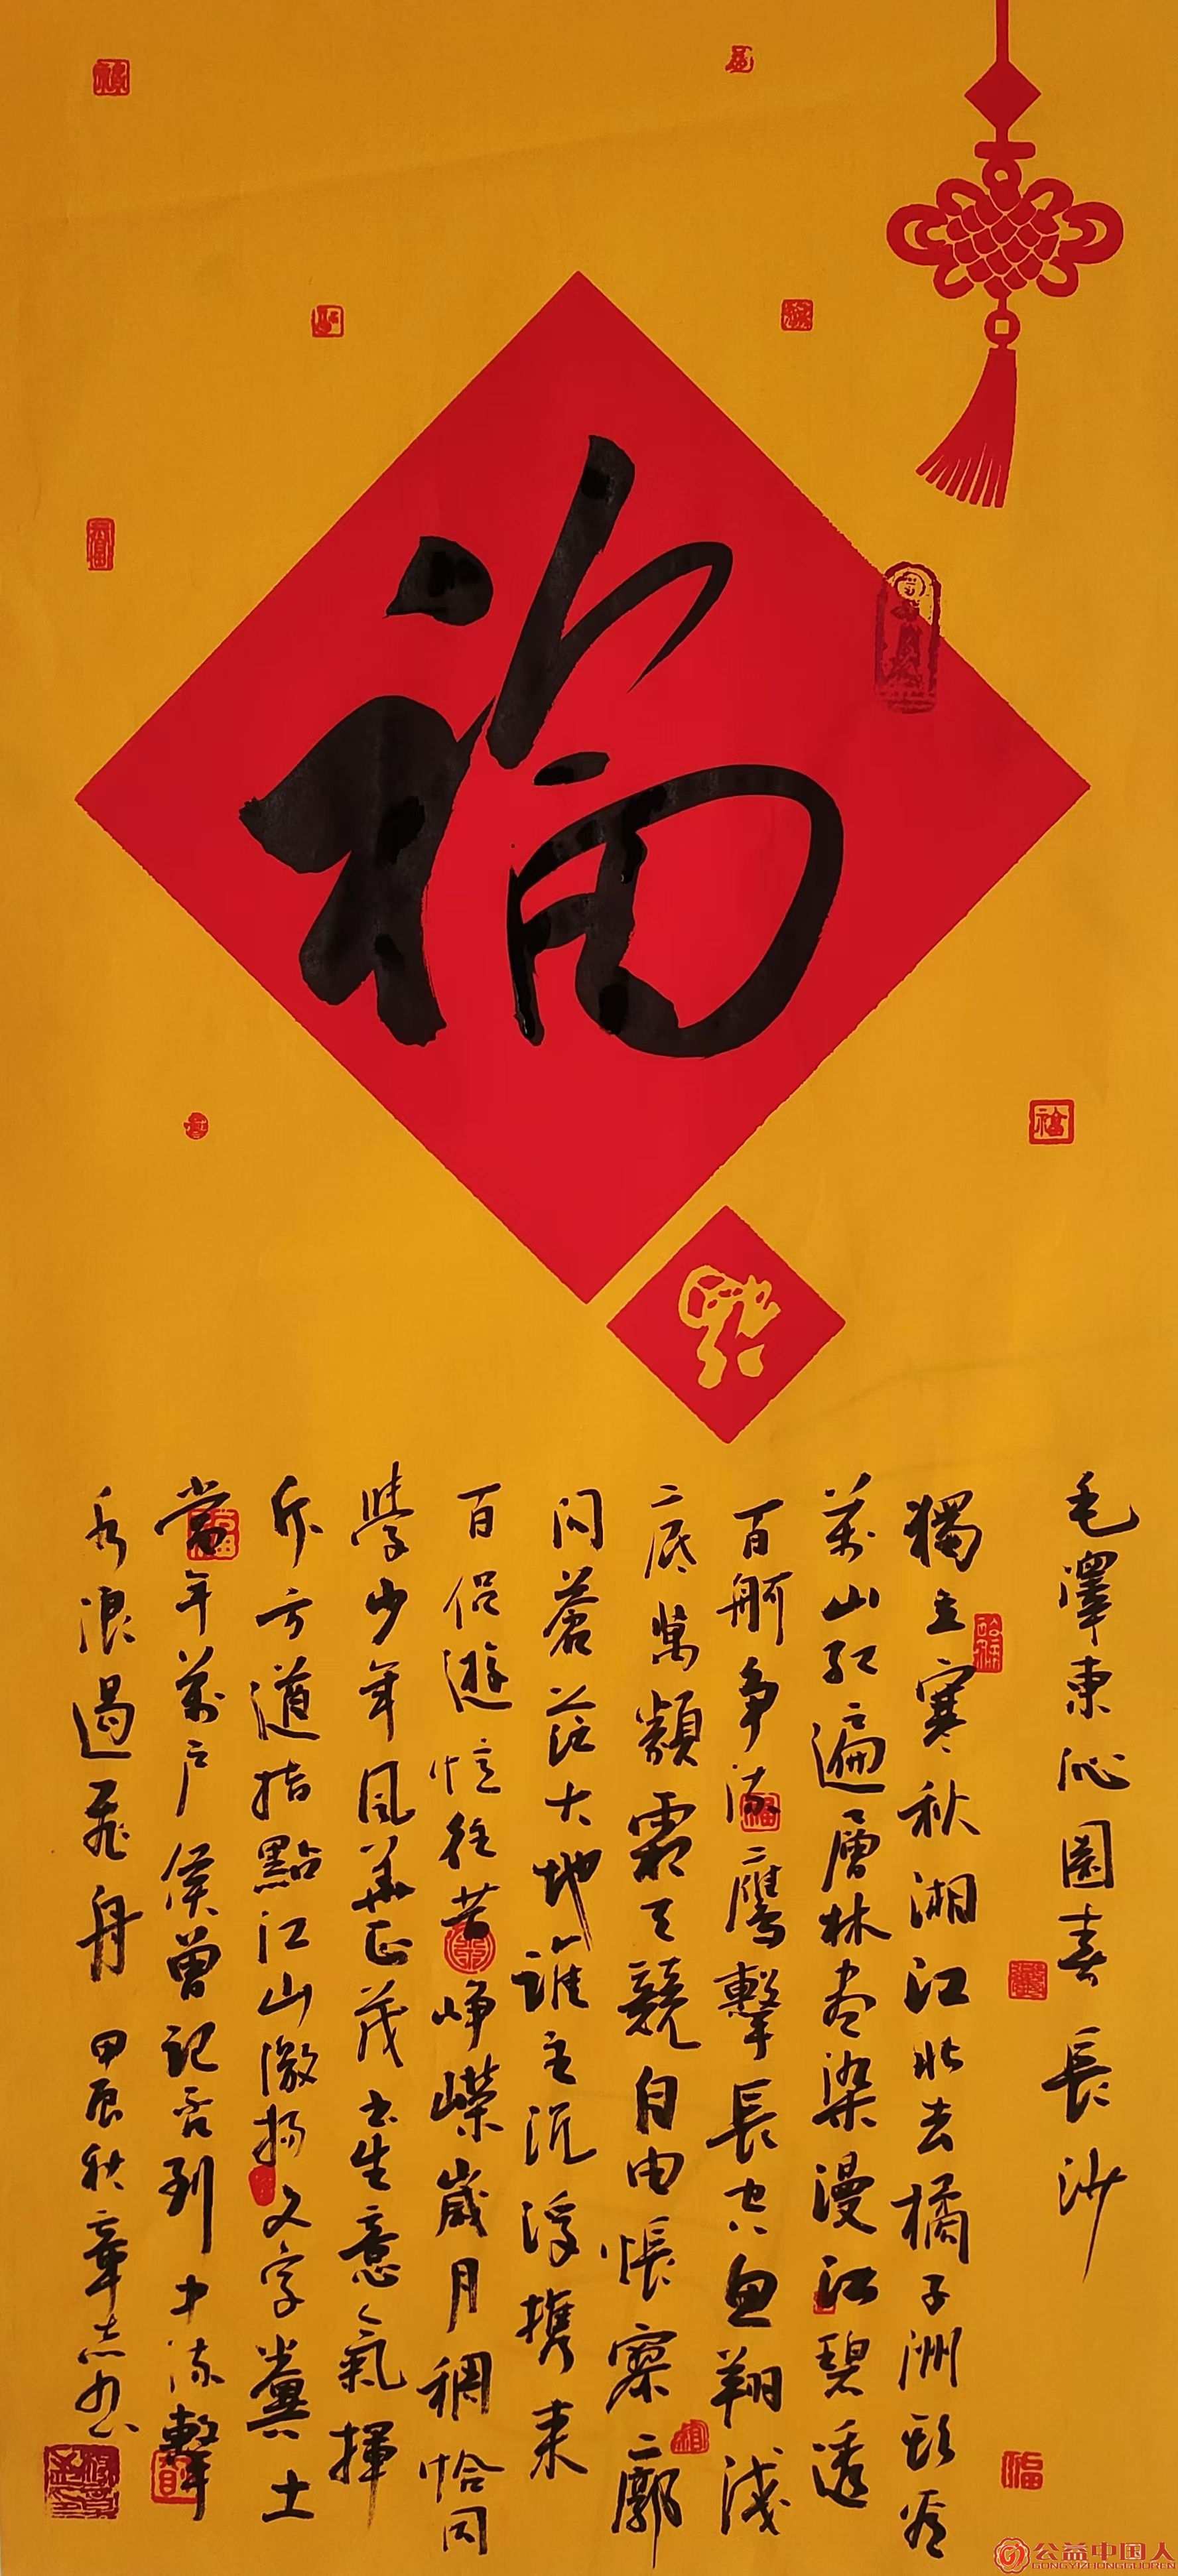 福
福
毛澤東沁園春長沙
獨立寒秋湘江北去橘子洲頭看
萬山紅遍層林盡染漫江碧透
百舸争流二鷹擊長空魚翔淺
二底萬類霜天競自由悵寥二廓
问蒼茫大地誰主沉浮攜來
百侣遊忆往昔峥嶸歲月稠恰同
學少年風華正茂书生意氣揮
斥方遒指點江山激揚文字糞土
當年萬户侯曾记否到中流擊
水浪遏飛舟 甲辰秋章志书
福
公益中国人
GONGYIZHONGGUOREN